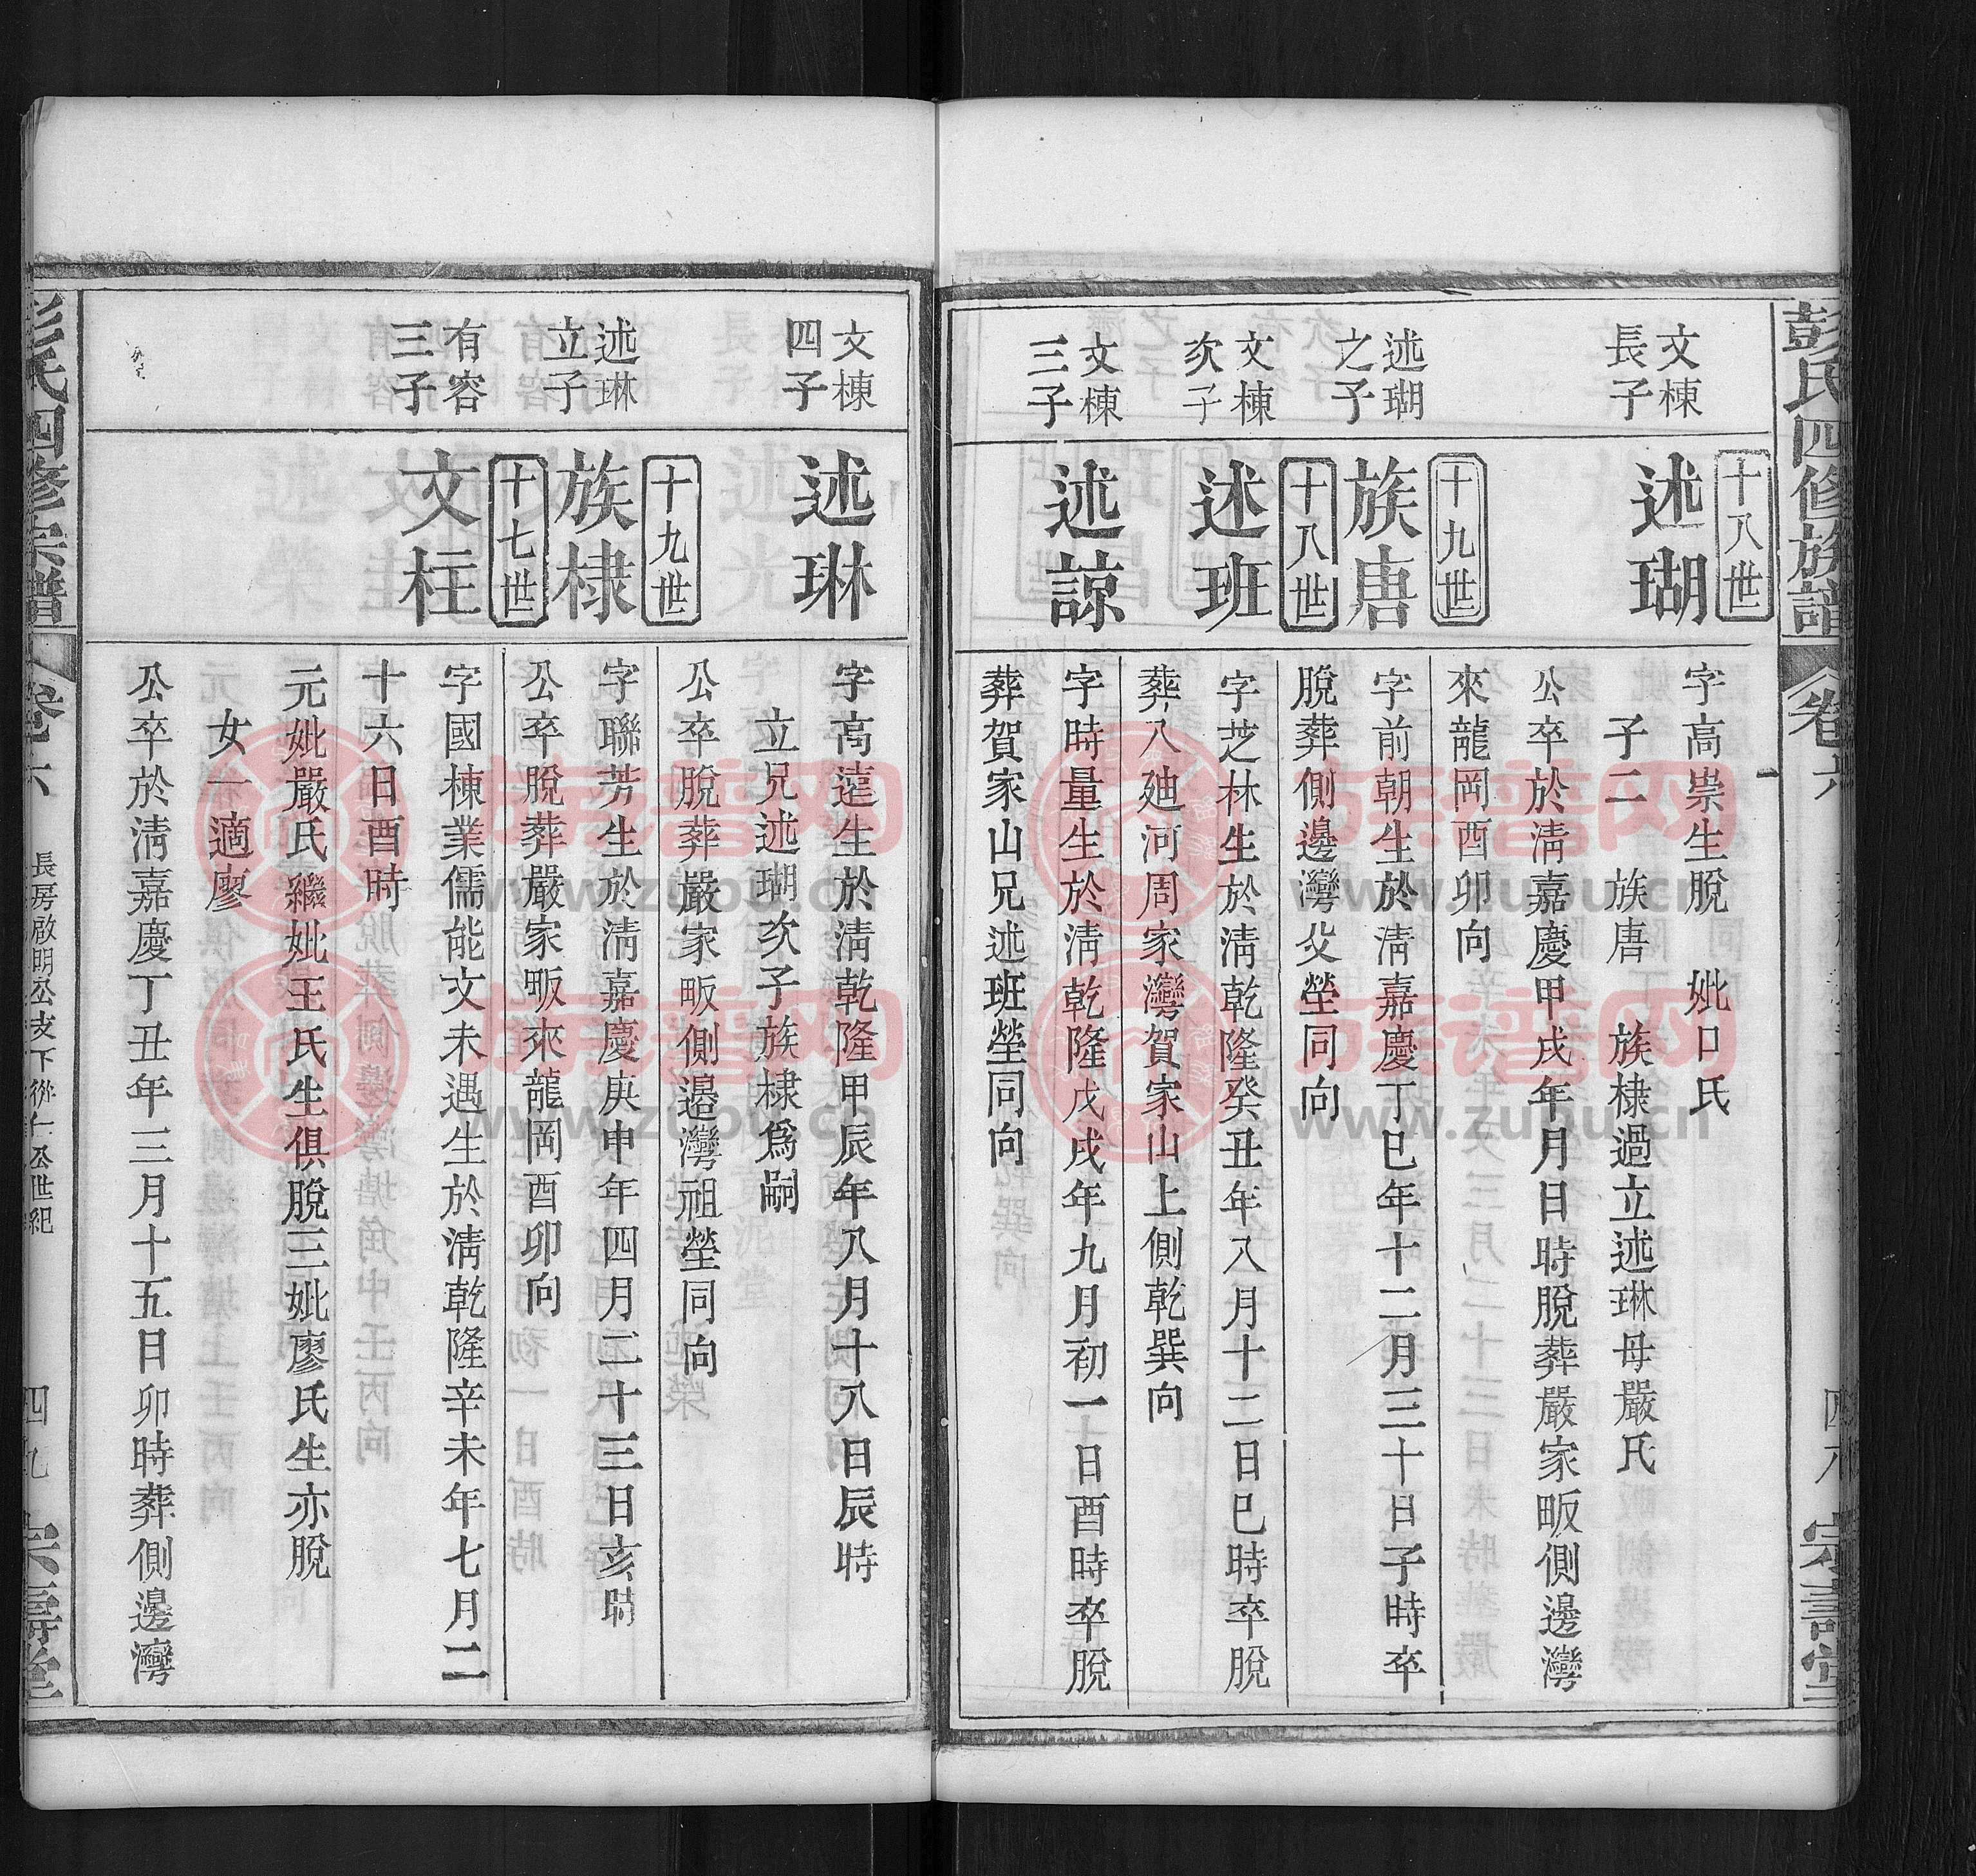 彭氏四修族譜
卷六
宗壽堂
十八世
文棟
長子
述瑚
字高崇生脫 妣口氏
子二 族唐 族棣過立述琳母嚴氏
公卒於淸嘉慶甲戌年月日時脫葬嚴家畈側邊灣
來龍岡酉卯向
十九世
述瑚
之子
族唐
字前朝生於淸嘉慶丁巳年十二月三十日子時卒
脫葬側邊灣父塋同向
十八世
文棟
次子
述班
字芝林生於淸乾隆癸丑年八月十二日巳時卒脫
葬八廸河周家灣賀家山上側乾巽向
文棟
三子
述諒
字時量生於淸乾隆戊戌年九月初一日酉時卒脫
葬賀家山兄述班塋同向
文棟
四子
述琳
字高遠生於淸乾隆甲辰年八月十八日辰時
立兄述瑚次子族棣爲嗣
公卒脫葬嚴家畈側邊灣祖塋同向
十九世
述琳
立子
族棣
字聯芳生於淸嘉慶庚申年四月二十三日亥時
公卒脫葬嚴家畈來龍岡酉卯向
十七世
有容
三子
文柱
字國棟業儒能文未遇生於淸乾隆辛未年七月二
十六日酉時
元妣嚴氏繼妣王氏生俱脫三妣廖氏生亦脫
女一適廖
公卒於淸嘉慶丁丑年三月十五日卯時葬側邊灣
彭氏四修宗譜
卷六
長房啟明公支下從仁公世紀
四九
宗壽堂
族譜网
www.zupu.cn
族譜网
www.zupu.cn
族譜网
www.zupu.cn
族譜网
www.zupu.cn